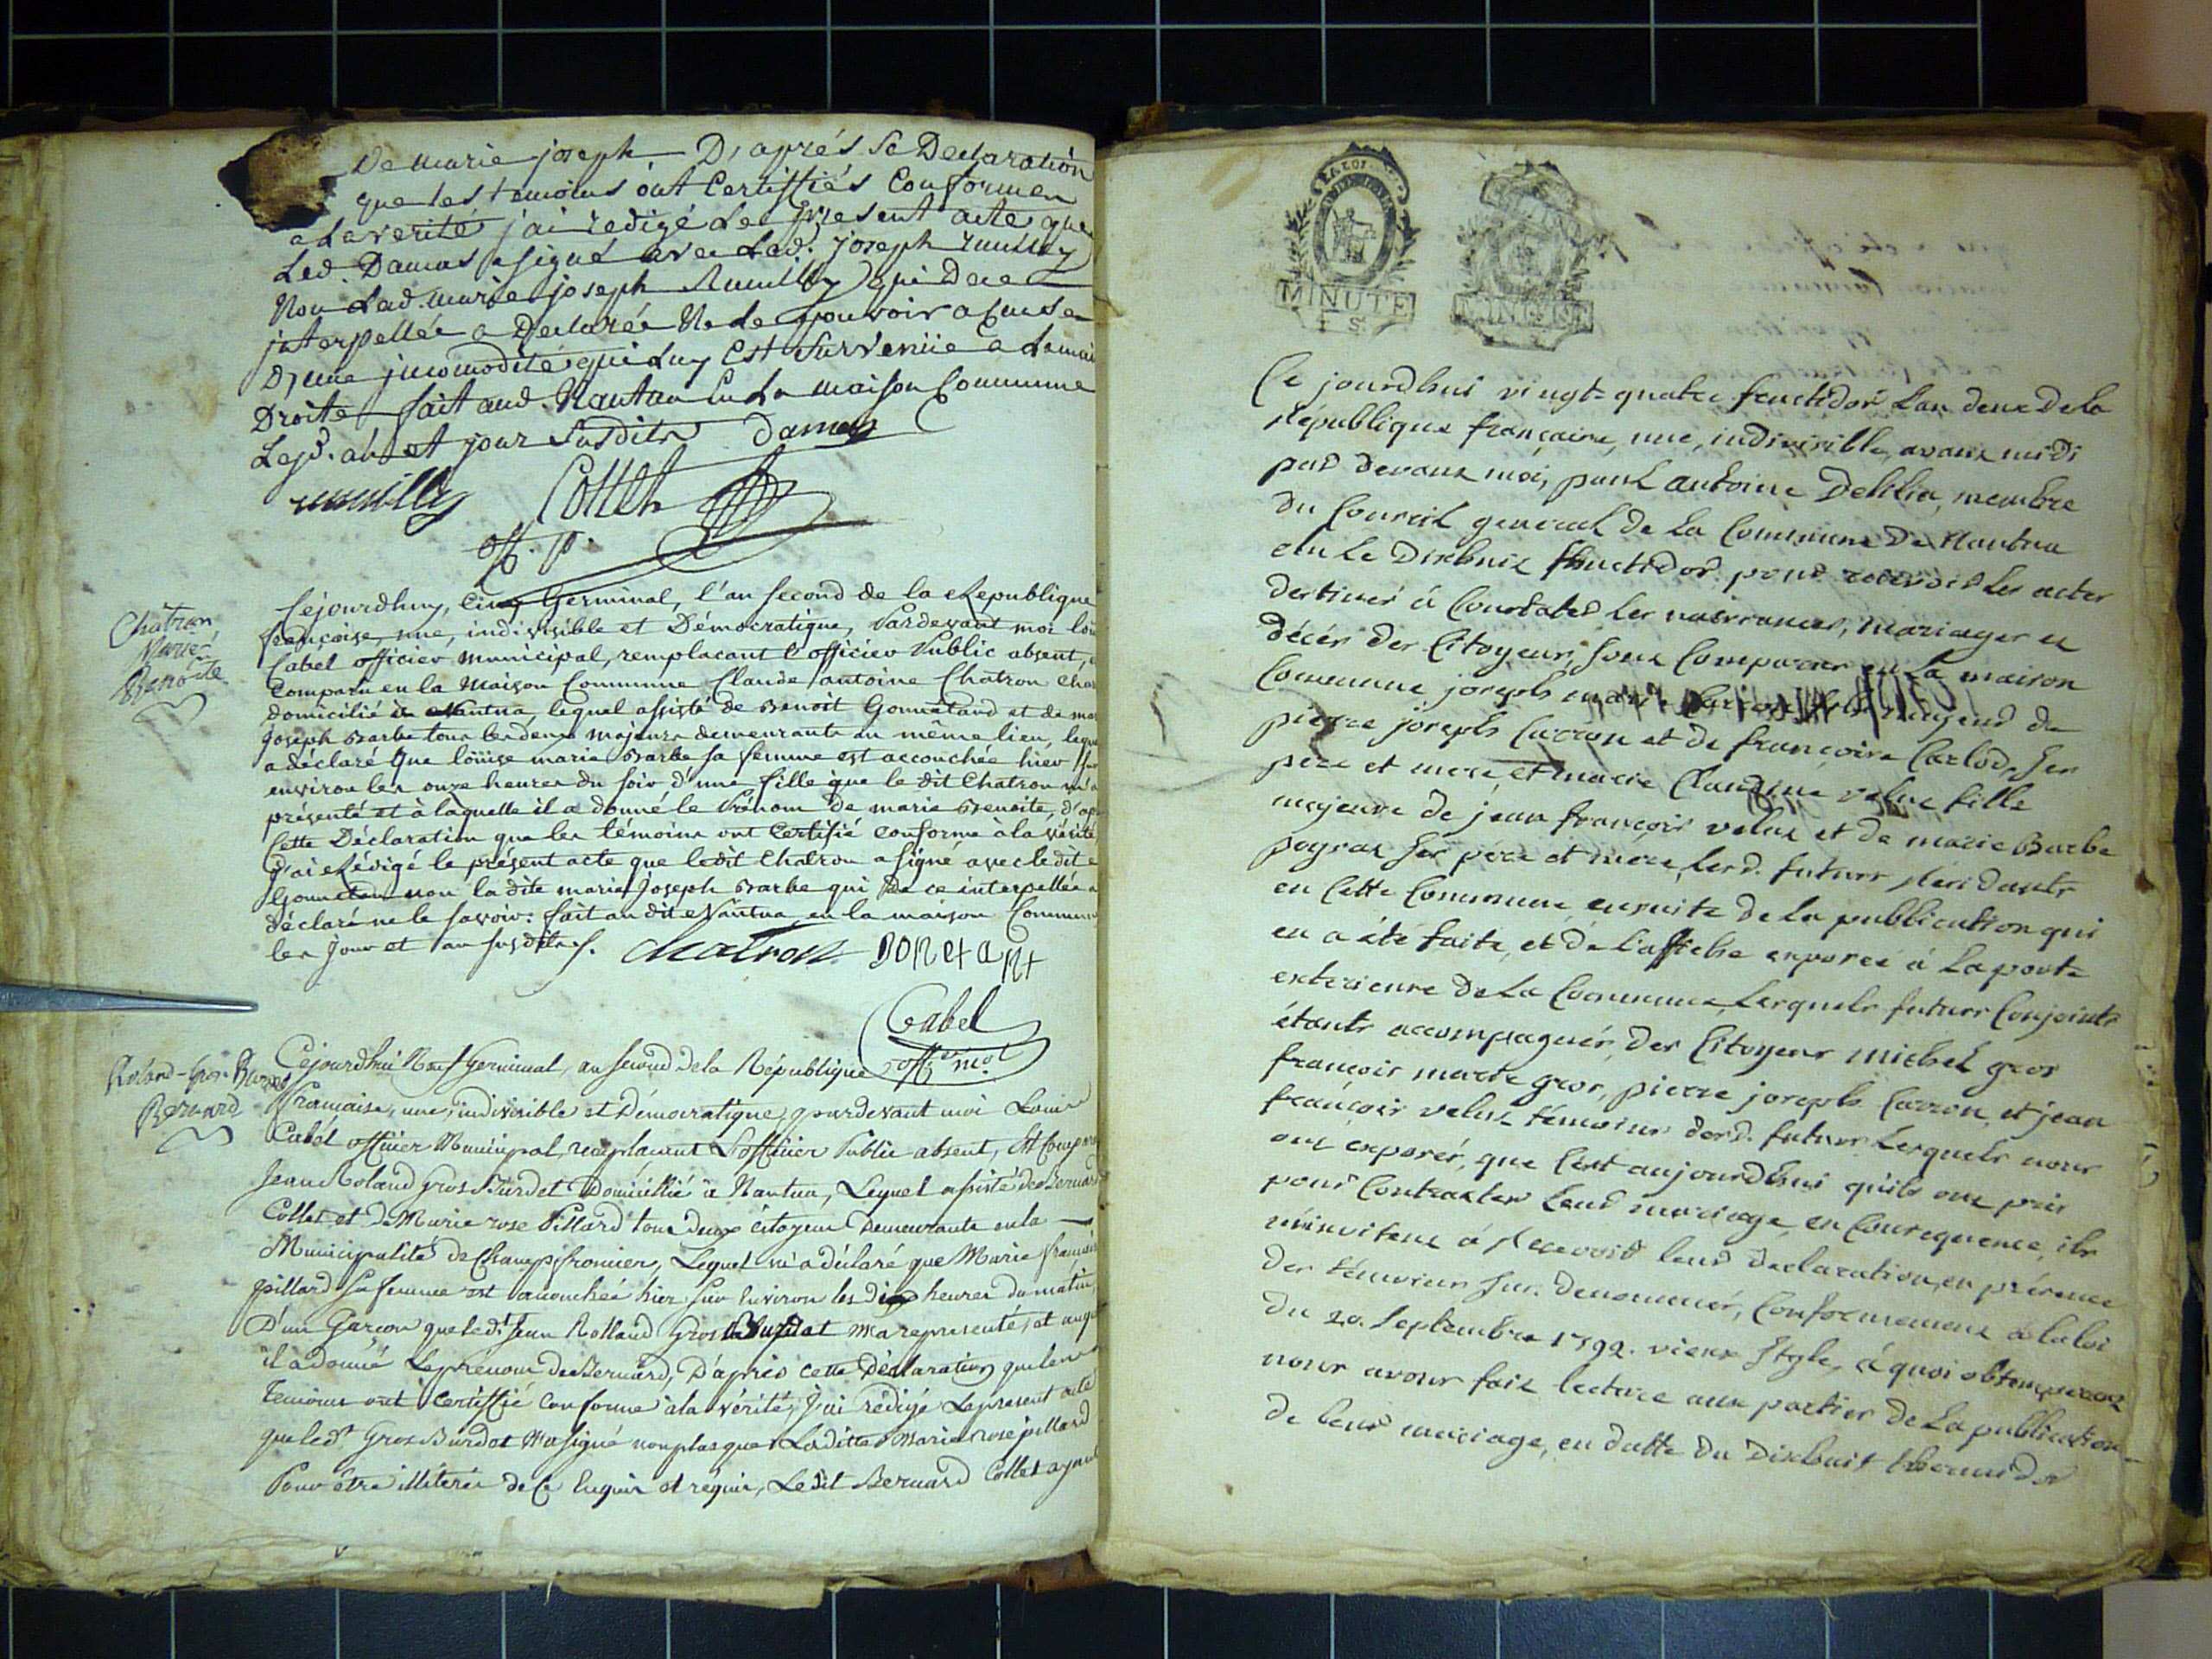 De marie joseph D'aprés Sa Declaration
que les temoins ont Certiffiés Conforme
a la verité j'ai redigé le present acte que
Led. Damas a signé avec Led. joseph rumilly
Non Lad. marie joseph Rumilly qui De ce
interpellée a Declarée Ne le pouvoir a Cause
D'une jncomodité qui luy est Survenüe a la main
Droite fait aud. Nantua En La maison Commune
Les d. an et jour Susdits Damas
rumilly Collet
off. p.
Chatron
Marie
Benoite
Cejourdhuy, Cinq Germinal, l'an second de la Republique
françoise, une, indivisible et Démocratique, Pardevant moi
Cabel officier municipal, remplacant l'officier Public absent,
Comparu en la Maison Commune Claude antoine Chatron
domicilié à Nantua, lequel assisté de Benoit Gonnetand et de
Joseph Barbe tous les deux majeurs demeurants au même lieu,
a déclaré que loüise marie Barbe sa femme est accouchée hier
environ les onze heures du soir d'une fille que le dit Chatron m'a
présenté et à laquelle il a donné le Prénom de marie Benoite,
Cette Déclaration que les témoins ont Certifié conforme à la vérité
J'ai Rédigé le présent acte que ledit Chatron a signé avec le dit
Gonnetand non la dite marie Joseph Barbe qui De ce interpellée a
déclaré ne le savoir. fait au dit Nantua en la maison Commune
les Jour et an susdits. Chatron BONETANT
Cabel
off. m.al
Roland-Gros-Burdet
Bernard
Cejourdhui Neuf Germinal, an second de la République
française, une, indivisible et Démocratique, pardevant moi Louis
Cabel officier Municipal, remplacant L'officier Public absent, est
Jean Roland Gros Burdet Domicillié à Nantua, Lequel assisté de Bernard
Collet et de Marie rose Pillard tous deux citoyens Demeurants en la
Municipalité de Champfromier, Lequel m'a déclaré que Marie
pillard sa femme est accouchée hier sur Environ les dix heures du matin
D'un Garcon que led.t Jean Rolland Gros Burdet m'a representé, et
il a donné Le prénom de Bernard, D'après cette Déclaration que les
Temoins ont Certiffié conforme à la vérité, J'ai rédigé Le present acte
que led.t Gros Burdet n'a signé non plus que Laditte Marie rose pillard
Pour être illiterés de Ce Enquis et requis, Ledit Bernard Collet ayant
LA LOI
MINUTE
S.
MINUTE
Ce jourdhui vingt-quatre fructidor L'an deux de la
République françoise, une, indivisible, avant midi
par devant moi, paul antoine Delilia, membre
du Conseil general de La Commune de Nantua
elu le Dixhuit fructidor pour recevoir les actes
destinés à Constater les naissances, mariages et
décés des Citoyens, sont Comparus en La maison
Commune joseph marie Carron fils majeur de
pierre joseph Carron et de françoise Carlod, ses
pere et mere, et marie Claudine velue fille
majeure de jean françois velut et de marie Barbe
pogras ses pére et mere, Lesd. futurs Résidants
en Cette Commune ensuite de La publication qui
en a été faite, et de L'affiche exposée à La porte
exterieure de La Commune, Lesquels futurs Conjoints
étants accompagnés, des Citoyens michel gros
françois marie gros, pierre joseph Carron, et jean
françois velut témoins desd. futurs Lesquels nous
ont exposés, que C'est aujourdhui qu'ils ont pris
pour Contracter Leur mariage, en Consequence, ils
m'invitent à Recevoir leur declaration, en présence
des témoins sus. denommés, Conformement à la loi
du 20. septembre 1792. vieux style, à quoi obtemperant
nous avons fait lecture aux parties de La publication
de leur mariage, en datte du Dixhuit thermidor